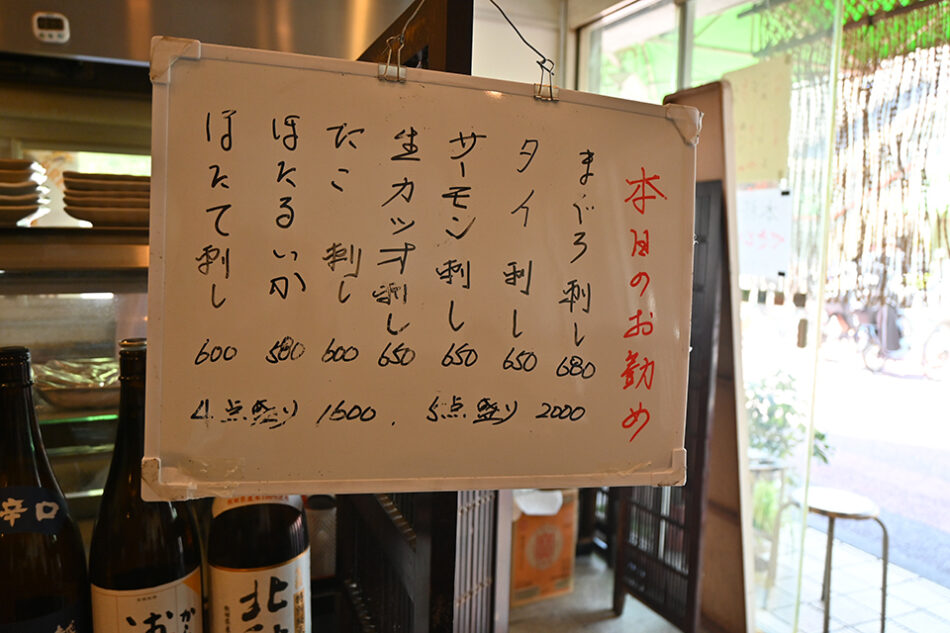 本日のお勧め
まぐろ刺し 680
タイ刺し 650
サーモン刺し 650
生カツオ刺し 650
たこ刺し 600
ほたるいか 580
ほたて刺し 600
4点盛り 1600. 5点盛り 2000
辛口